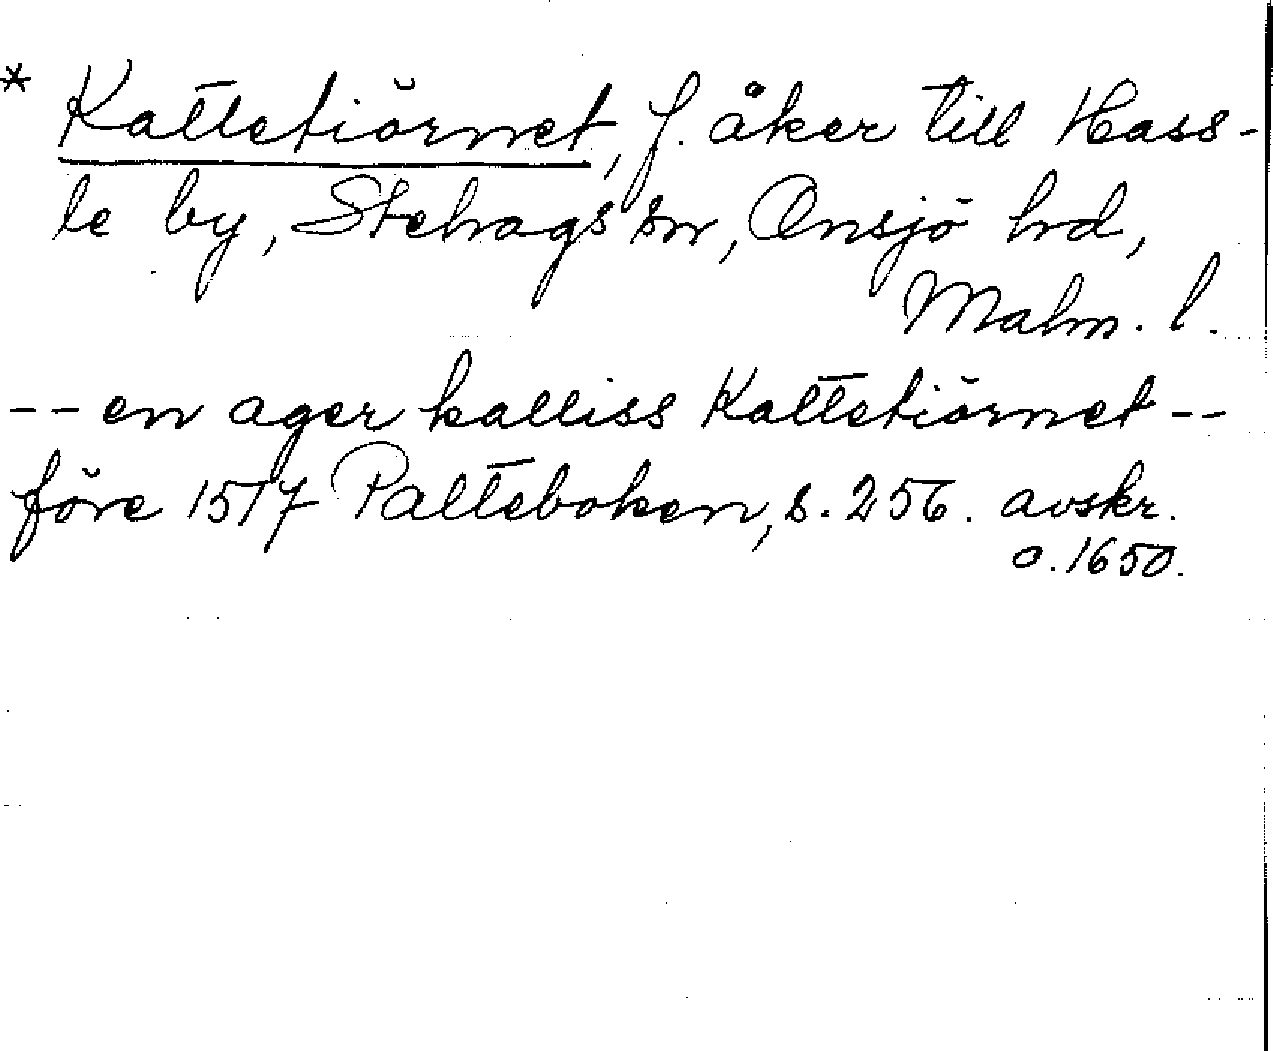 * Kattetiörnet, f. åker till Hass-
le by, Stehags sn, Onsjö hd,
Malm. l.
-- en ager kalliss Kattetiörnet --
före 1517 Palteboken, s. 256. avskr.
o. 1650.